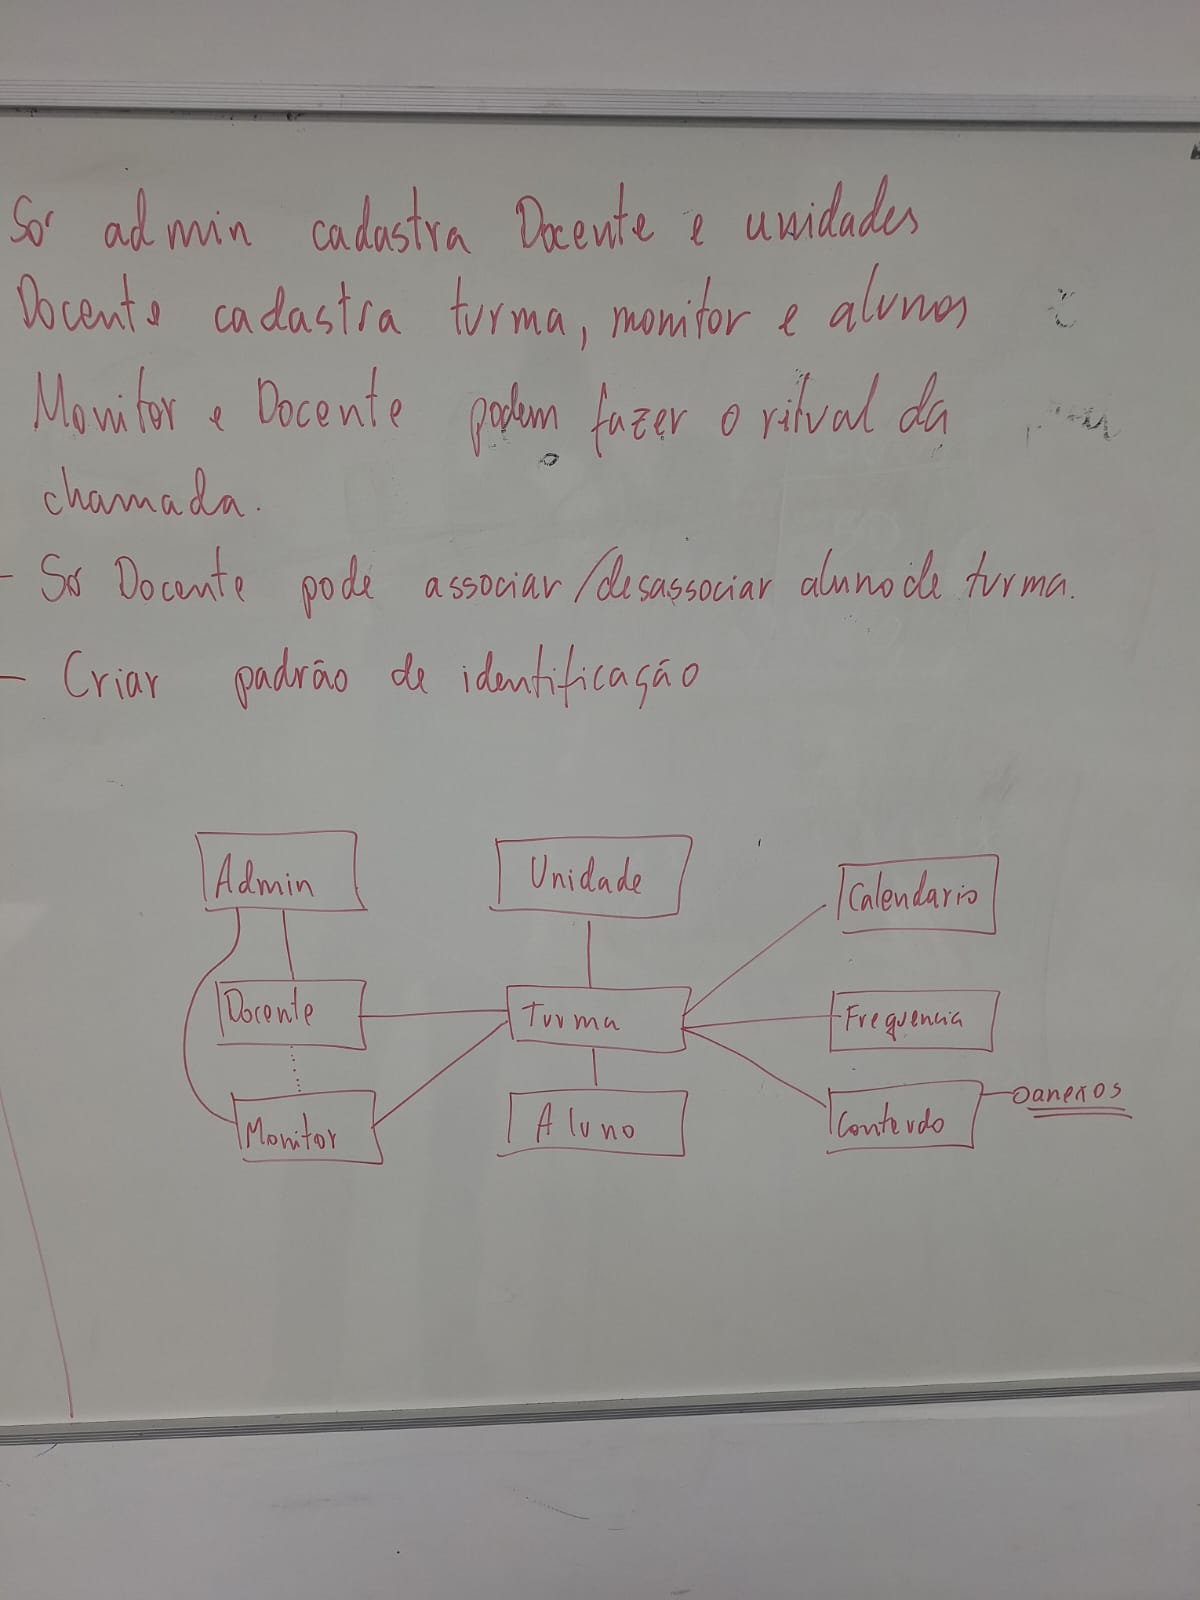 Só admin cadastra Docente e unidades
Docente cadastra turma, monitor e alunos
Monitor e Docente podem fazer o ritual da
chamada.
- Só Docente pode associar/desassociar aluno de turma.
- Criar padrão de identificação
Admin
Unidade
Calendario
Docente
Turma
Frequencia
Monitor
Aluno
Conteudo
anexos